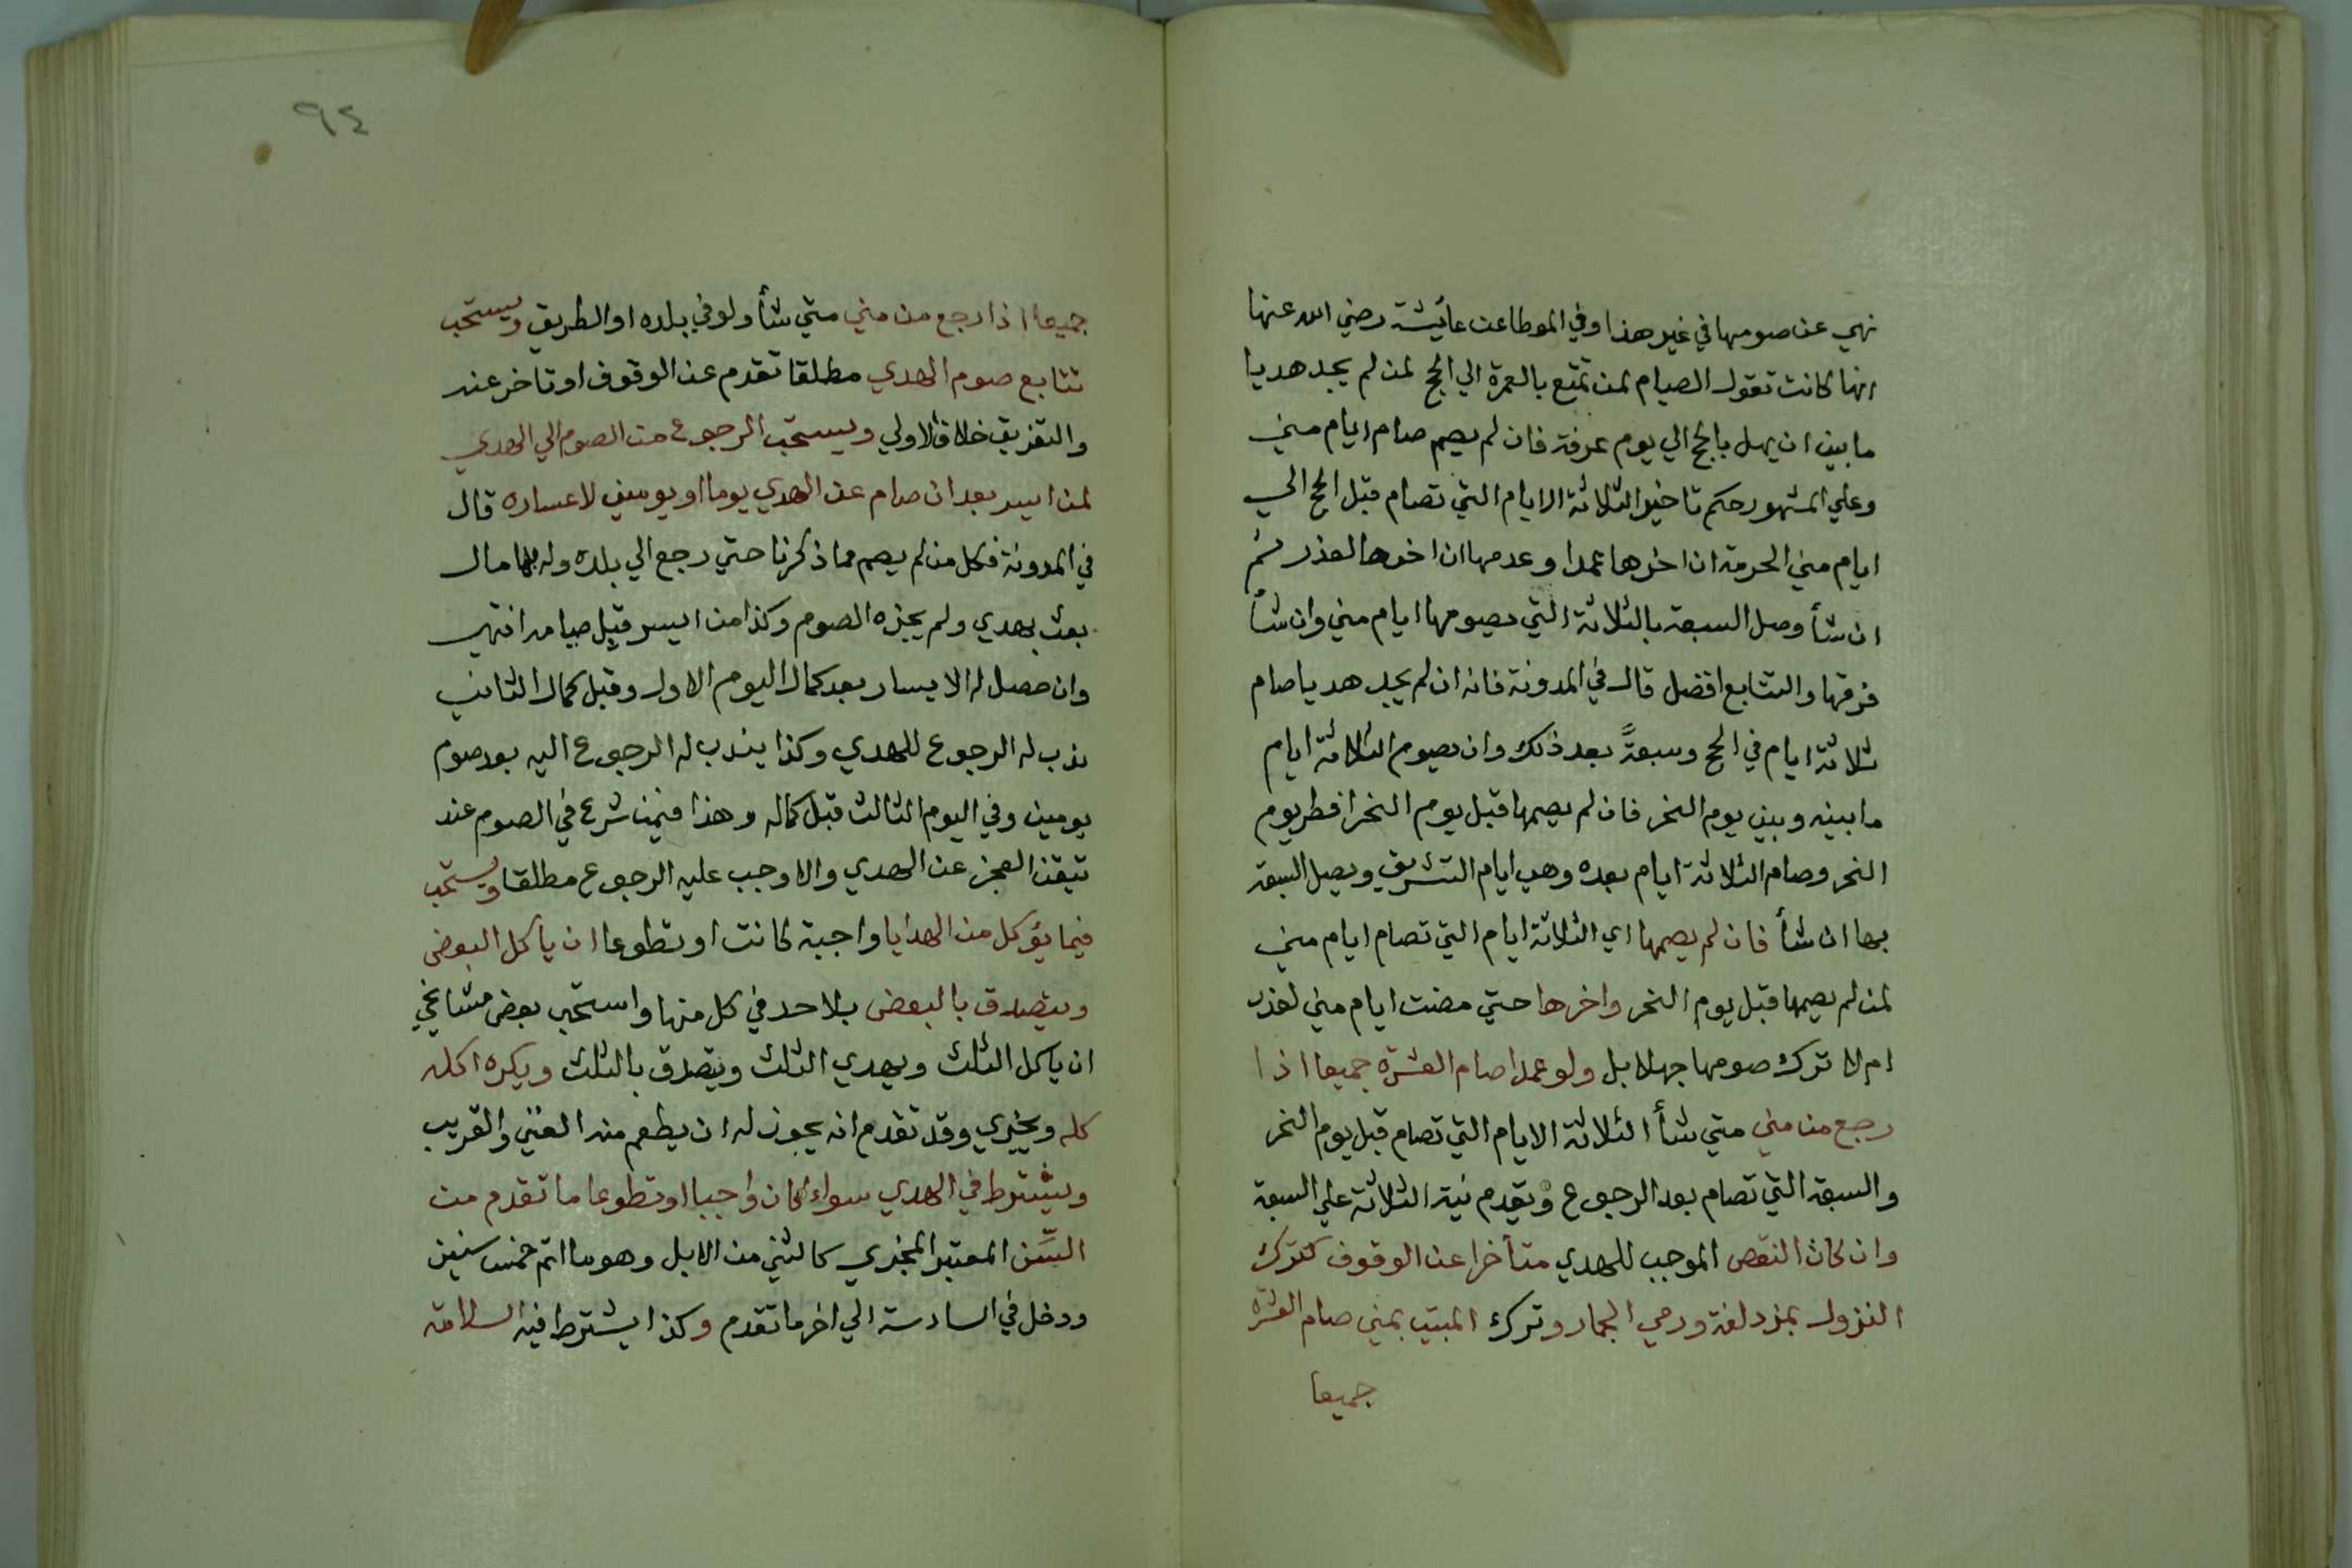 نهي عن صومها في غير هذا وفي الموطا عن عائشة رضي الله عنها
انها كانت تقول الصيام لمن تمتع بالعمرة الي الحج لمن لم يجد هديا
ما بين ان يهل بالحج الي يوم عرفة فان لم يصم صام ايام مني
وعلي المشهور حكم تاخير الثلاثة الايام التي تصام قبل الحج الي
ايام مني الحرمة ان اخرها عمدا وعدمها ان اخرها لعذر ثم
ان شأ وصل السبعة بالثلاثة التي يصومها ايام مني وان شأ
فرقها والتتابع افضل قال في المدونة فانه ان لم يجد هديا صام
ثلاثة ايام في الحج وسبعةً بعد ذلك وان يصوم الثلاثة ايام
ما بينه وبين يوم النحر فان لم يصمها قبل يوم النحر افطر يوم
النحر وصام الثلاثة ايام بعده وهي ايام التشريق ويصل السبعة
بها ان شأ فان لم يصمها اي الثلاثة ايام التي تصام ايام مني
لمن لم يصمها قبل يوم النحر واخرها حتي مضت ايام مني لعذر
ام لا ترك صومها جهلا بل ولو عمدا صام العشرة جميعا اذا
رجع من مني متي شأ الثلاثة الايام التي تصام قبل يوم النحر
والسبعة التي تصام بعد الرجوع ويقدم نية الثلاثة علي السبعة
وان كان النقص الموجب للهدي متأخرا عن الوقوف كترك
النزول بمزدلفة ورمي الجمار وترك المبيت بمني صام العشرة
جميعا
٩٤
جميعا اذا رجع من مني متي شأ ولو في بلده او الطريق ويستحب
تتابع صوم الهدي مطلقا تقدم عن الوقوف او تاخر عنه
والتفريق خلاف الاولي ويستحب الرجوع من الصوم الي الهدي
لمن ايسر بعد ان صام عن الهدي يوما او يومين لاعساره قال
في المدونة فكل من لم يصم مما ذكرنا حتي رجع الي بلده وله بها مال
بعث بهدي ولم يجزه الصوم وكذا من ايسر قبل صيامه انتهي
وان حصل له الايسار بعد كمال اليوم الاول وقبل كمال الثاني
ندب له الرجوع للهدي وكذا يندب له الرجوع اليه بعد صوم
يومين وفي اليوم الثالث قبل كماله وهذا فيمن شرع في الصوم عند
تيقن العجز عن الهدي والا وجب عليه الرجوع مطلقا ويستحب
فيما يؤكل من الهدايا واجبة كانت او تطوعا ان ياكل البعض
ويتصدق بالبعض بلا حد في كل منها واستحب بعض مشايخي
ان ياكل الثلث ويهدي الثلث ويتصدق بالثلث ويكره اكله
كله ويجزي وقد تقدم انه يجوز له ان يطعم منه الغني والقريب
ويشترط في الهدي سواء كان واجبا او تطوعا ما تقدم من
السّن المعتبر المجزي كالثني من الابل وهو ما اتم خمس سنين
ودخل في السادسة الي اخر ما تقدم وكذا يشترط فيه السلامة